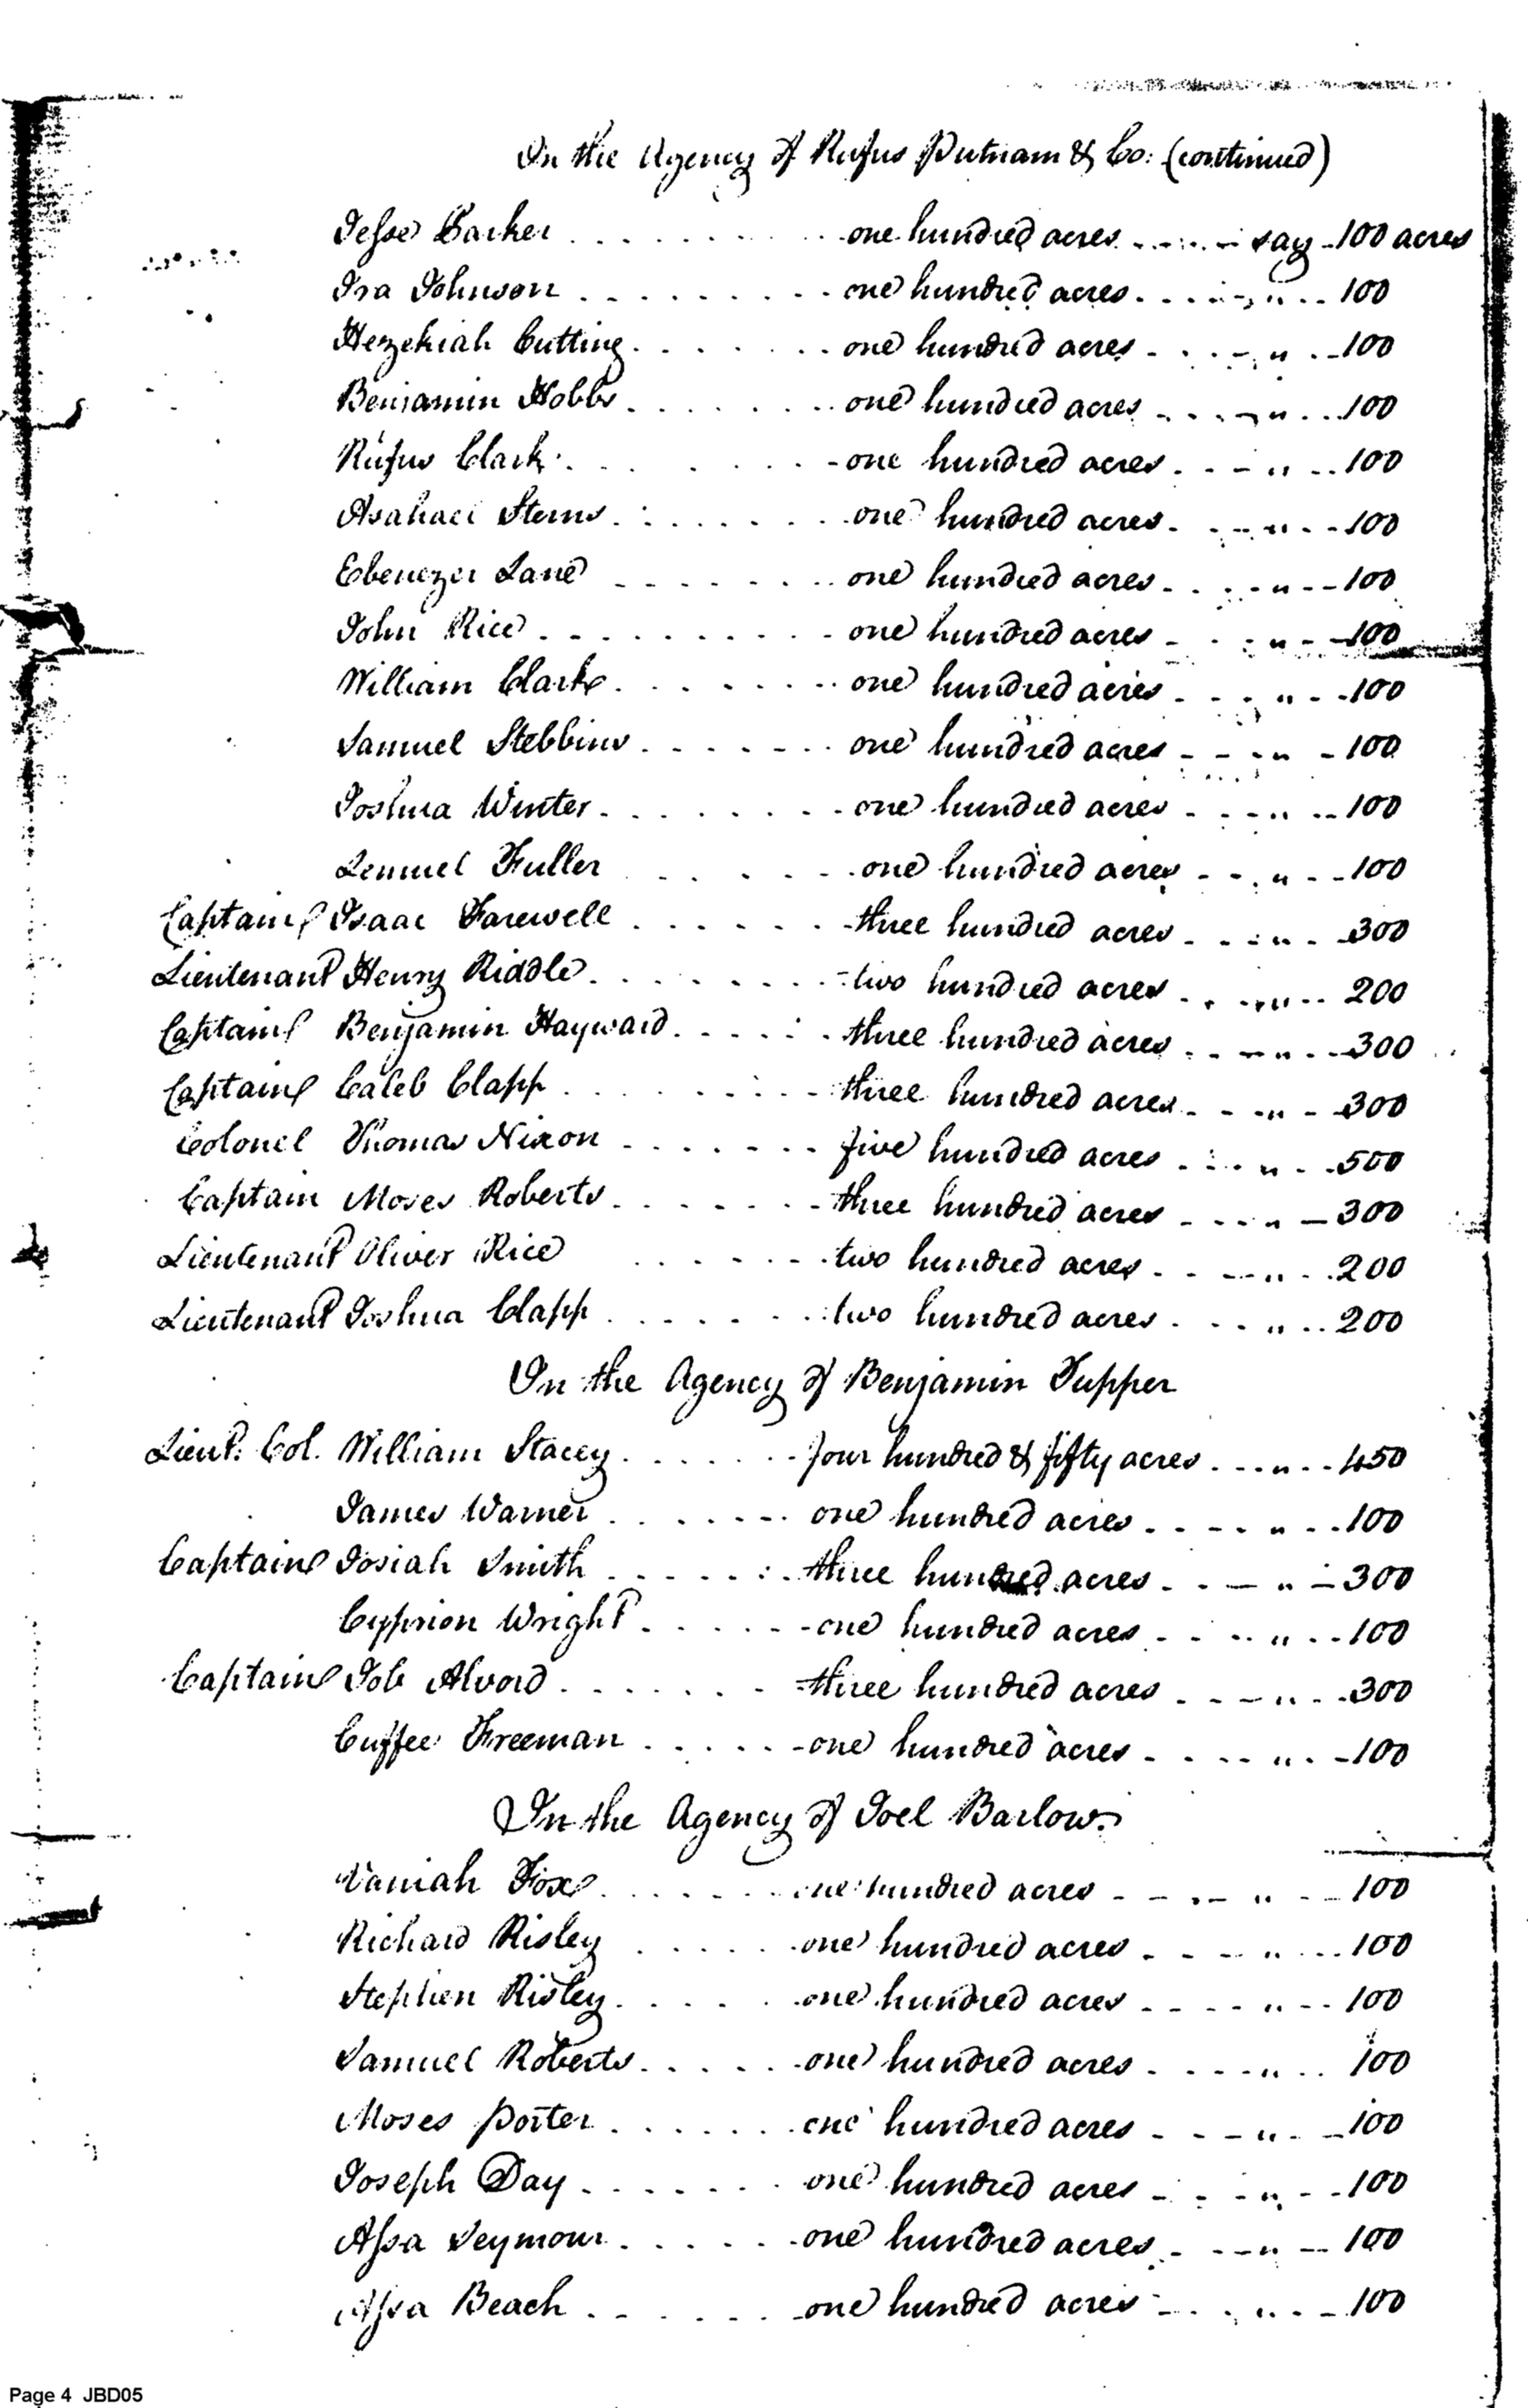 In the Agency of Rufus Putnam & Co: (continued)
Jesse Barker . . . . . . . . . one hundred acres . . . . . say - 100 acres
Ira Johnson . . . . . . . . . one hundred acres . . . . " . . 100
Hezekiah Cutting . . . . . . . one hundred acres . . . . " . . 100
Benjamin Hobbs . . . . . . . one hundred acres . . . . " . . 100
Rufus Clark . . . . . . . one hundred acres . . . " . . 100
Stems . . . . . . . one hundred acres . . . " . . 100
Ebenezer Lane . . . . . . . one hundred acres . . . " . . 100
John Rice . . . . . . . . . one hundred acres . . . " . . 100
William Clarke . . . . . . . one hundred acres . . . " . . 100
Samuel Stebbins . . . . . . . one hundred acres . . . " . 100
Joshua Winter . . . . . . . . one hundred acres . . . " . . 100
Lemuel Fuller . . . . . . one hundred acres . . . " . . 100
Captain Isaac Farewell . . . . . . three hundred acres . . . " . . 300
Lieutenant Henry Riddle . . . . . . . two hundred acres . . . " . . 200
Captain Benjamin Hayward . . . . . . three hundred acres . . . " . . 300
Captain Caleb Clapp . . . . . . . . three hundred acres . . . " . 300
Colonel Thomas Nixon . . . . . . . five hundred acres . . . " . . 500
Captain Moses Roberts . . . . . . . three hundred acres . . . " - 300
Lieutenant Oliver Rice . . . . . . two hundred acres . . . " . . 200
Lieutenant Joshua Clapp . . . . . . . two hundred acres . . . " . . 200
In the Agency of Benjamin Tupper
Lieut. Col. William Stacey . . . . . . . four hundred & fifty acres . . . " . . 450
James Warner . . . . . . . one hundred acres . . . . " . . 100
Captain Josiah Smith . . . . . . three hundred acres . . . " - 300
Cyprion Wright . . . . . . one hundred acres . . . " . . 100
Captain Job Alvord . . . . . . . three hundred acres . . . " . . 300
Cuffee Freeman . . . . . . one hundred acres . . . . " . . 100
In the Agency of Joel Barlow.
Vaniah Fox . . . . . . . one hundred acres . . . . " . . 100
Richard Risley . . . . . one hundred acres . . . . " . . 100
Stephen Risley . . . . . one hundred acres . . . . " . . 100
Samuel Roberts . . . . . . one hundred acres . . . . " . . 100
Moses Porter . . . . . . . one hundred acres . . . " . . 100
Joseph Day . . . . . . . one hundred acres . . . " . . 100
Assa Seymour . . . . . . one hundred acres . . . " . . 100
Assa Beach . . . . . . . one hundred acres . . . " . . 100
Page 4 JBD05